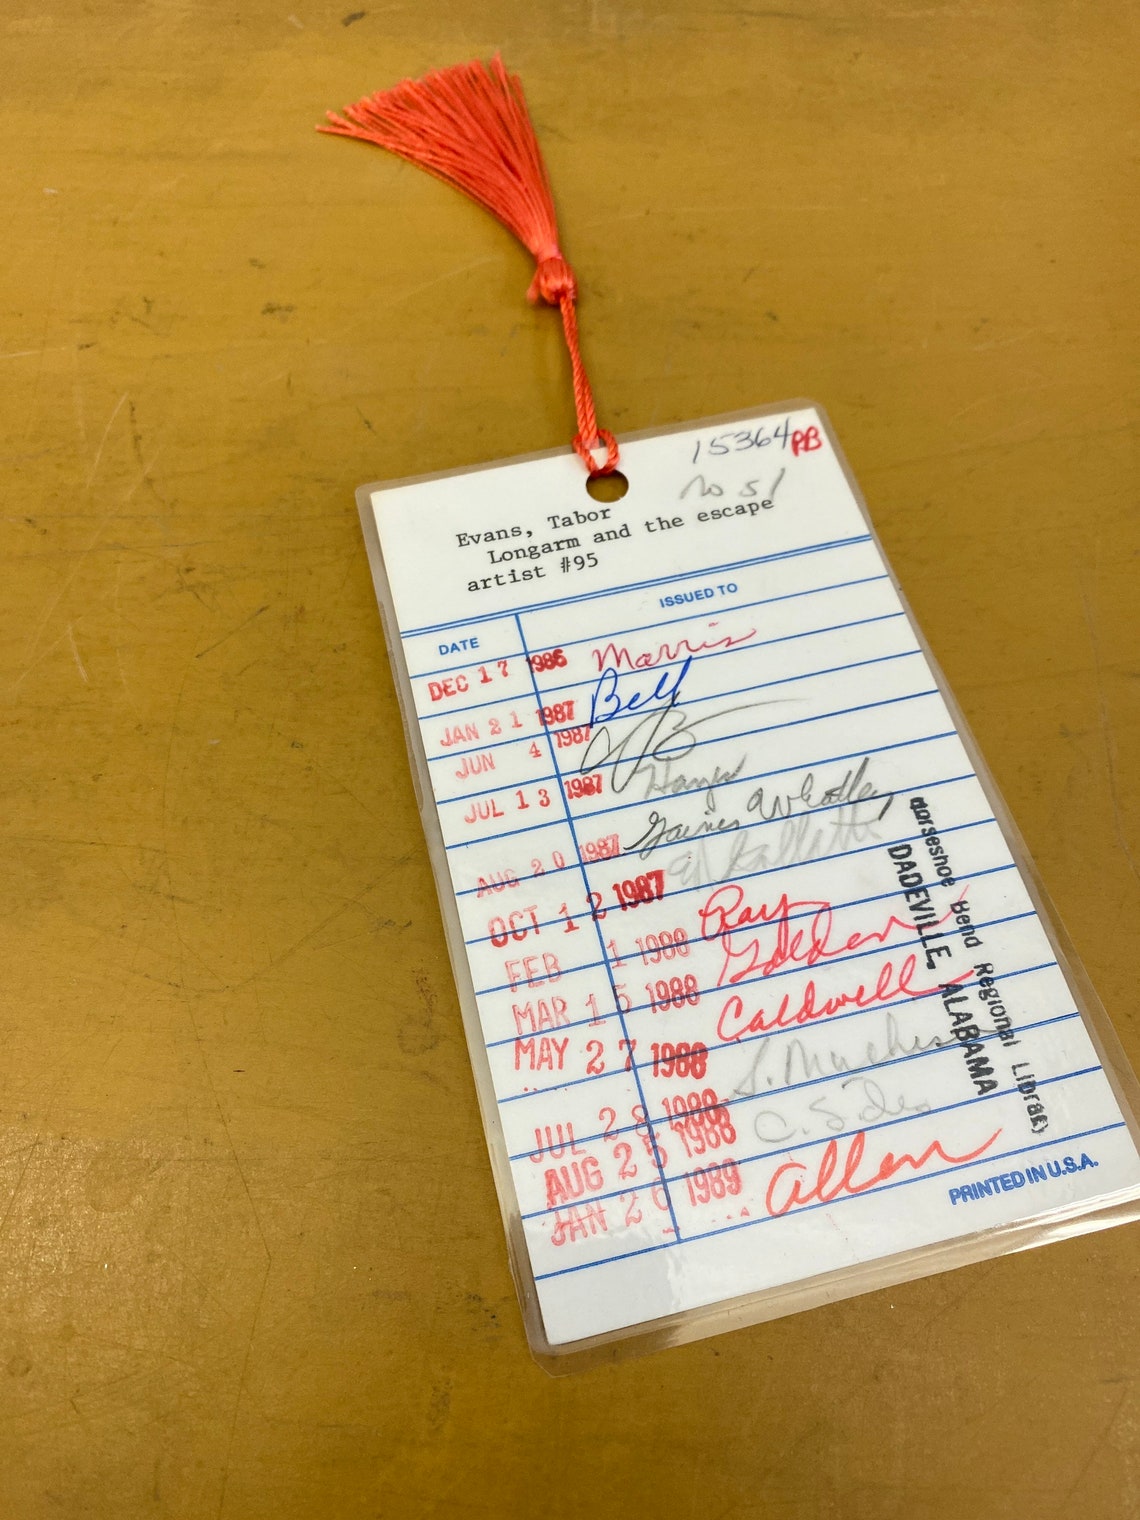 15364 PB
No 51
Evans, Tabor
Longarm and the escape
artist #95
DATE ISSUED TO
DEC 17 1986 Morris
JAN 21 1987 Bell
JUN 4 1987
JUL 13 1987 Hayes
AUG 20 1987 Gaines Wheatley
OCT 12 1987
FEB 1 1988 Ray
MAR 15 1988 Golden
MAY 27 1988 Caldwell
JUL 28 1988
AUG 25 1988
JAN 26 1989 Allen
PRINTED IN U.S.A.
Horseshoe Bend Regional Library
DADEVILLE, ALABAMA